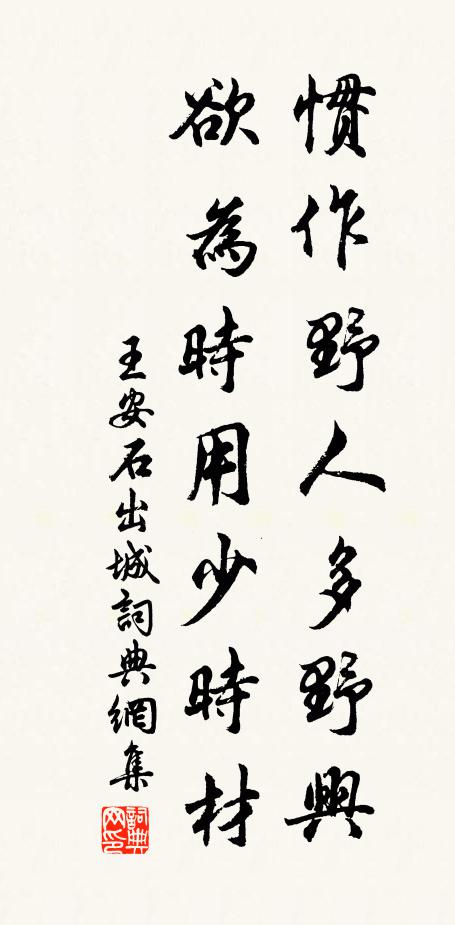 慣作野人多野興
欲為時用少時材
王安石出城詞典網集
詞典网印